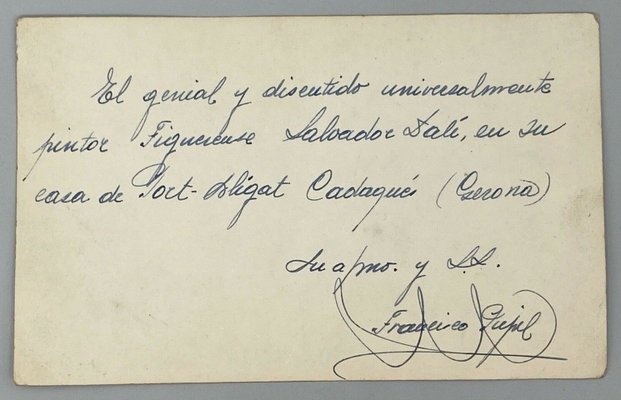 El genial y discutido universalmente
pintor Figuerense Salvador Dalí, en su
casa de Port-Lligat Cadaqués (Gerona)
Su afmo. y S.S.
Francisco